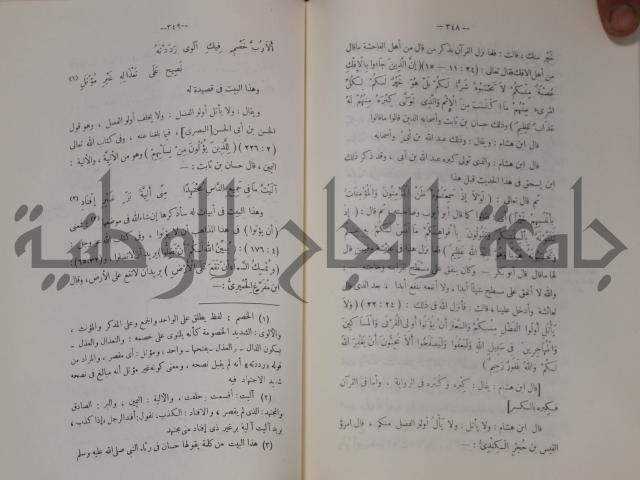 — ٣٤٨ —
خير منك، قالت: فلما نزل القرآن بذكر من قال من أهل الفاحشة ما قال
من أهل الإفك فقال تعالى: (٢٤: ١١ — ١٥) (إِنَّ الَّذِينَ جَاءُوا بِالْإِفْكِ
عُصْبَةٌ مِنْكُمْ لَا تَحْسَبُوهُ شَرًّا لَكُمْ بَلْ هُوَ خَيْرٌ لَكُمْ لِكُلِّ
امْرِئٍ مِنْهُمْ مَا اكْتَسَبَ مِنَ الْإِثْمِ وَالَّذِي تَوَلَّى كِبْرَهُ مِنْهُمْ لَهُ
عَذَابٌ عَظِيمٌ) وذلك حسان بن ثابت وأصحابه الذين قالوا ما قالوا
قال ابن هشام: ويقال: وذلك عبد الله بن أبي وأصحابه
قال ابن هشام: والذي تولى كبره عبد الله بن أبي، وقد ذكر ذلك
ابن إسحق في هذا الحديث قبل هذا
ثم قال تعالى: (لَوْلَا إِذْ سَمِعْتُمُوهُ ظَنَّ الْمُؤْمِنُونَ وَالْمُؤْمِنَاتُ
بِأَنْفُسِهِمْ خَيْرًا) أي: قالوا كما قال أبو أيوب وصاحبته، ثم قال: (إِذْ
تَلَقَّوْنَهُ بِأَلْسِنَتِكُمْ وَتَقُولُونَ بِأَفْوَاهِكُمْ مَا لَيْسَ لَكُمْ بِهِ
عِلْمٌ وَتَحْسَبُونَهُ هَيِّنًا وَهُوَ عِنْدَ اللهِ عَظِيمٌ)
لها ما قال، قال أبو بكر — وكان ينفق على مسطح لقرابته وحاجته —:
والله لا أنفق على مسطح شيئًا أبدًا، ولا أنفعه بنفع أبدًا، بعد الذي قال
لعائشة وأدخل علينا، قالت: فأنزل الله في ذلك: (٢٤: ٢٢) (وَلَا
يَأْتَلِ أُولُوا الْفَضْلِ مِنْكُمْ وَالسَّعَةِ أَنْ يُؤْتُوا أُولِي الْقُرْبَى وَالْمَسَاكِينَ
وَالْمُهَاجِرِينَ فِي سَبِيلِ اللهِ وَلْيَعْفُوا وَلْيَصْفَحُوا أَلَا تُحِبُّونَ أَنْ يَغْفِرَ اللهُ
لَكُمْ وَاللهُ غَفُورٌ رَحِيمٌ)
[قال ابن هشام: يقال: كِبْره وكُبْره في الرواية، وأما في القرآن
فكبره بالكسر]
قال ابن هشام: ولا يأتل: ولا يَأْلُ أولو الفضل منكم، قال امرؤ
القيس بن حُجْرٍ الكِنْدِيُّ:
— ٣٤٩ —
أَلَا رُبَّ خَصْمٍ فِيكِ أَلْوَى رَدَدْتُهُ
نَصِيحٍ عَلَى تَعْذَالِهِ غَيْرِ مُؤْتَلِي (١)
وهذا البيت في قصيدة له
ويقال: ولا يأتل أولو الفضل: ولا يحلف أولو الفضل، وهو قول
الحسن بن أبي الحسن [البصري]، فيما بلغنا عنه، وفي كتاب الله تعالى
(٢: ٢٢٦) (لِلَّذِينَ يُؤْلُونَ مِنْ نِسَائِهِمْ) وهو من الأَلِيَّة، والألية:
اليمين، قال حسان بن ثابت:
آلَيْتُ مَا فِي جَمِيعِ النَّاسِ مُجْتَهِدًا مِنِّي أَلِيَّةَ بَرٍّ غَيْرِ إِفْنَادِ (٢)
وهذا البيت في أبيات له سأذكرها إن شاء الله في موضعها (٣) فمعنى
(أن يؤتوا) في هذا المذهب أن لا يؤتوا، وفي كتاب الله
(٤: ١٧٦) (يُبَيِّنُ اللهُ لَكُمْ أَنْ تَضِلُّوا) يريد أن لا تضلوا، و(٢٢: ٦٥)
(وَيُمْسِكُ السَّمَاءَ أَنْ تَقَعَ عَلَى الْأَرْضِ) يريد أن لا تقع على الأرض، وقال
ابن مُفَرِّغٍ الْحِمْيَرِيُّ:
(١) الخصم: لفظ يطلق على الواحد والجمع وعلى المذكر والمؤنث،
والألوى: الشديد الخصومة كأنه يلتوي على خصمه: والتعذال والعذل -
بسكون الذال - والعذل - بفتحها - واحد، ومؤتل: أي مقصر، والمراد من
قوله «رددته» أنه لم يقبل نصحه، ومعنى كونه غير مؤتل أنه مبالغ في نصحه
شديد الاجتهاد فيه
(٢) آليت: أقسمت، حلفت، والألية: اليمين، والبر: الصادق
والمجتهد: الذي لم يقصر، والافناد: الكذب، تقول: أفند الرجل، إذا كذب،
يريد آليت ألية بر غير ذي إفناد مني مجتهد
(٣) هذا البيت من كلمة يقولها حسان في رثاء النبي صلى الله عليه وسلم
جامعة النجاح الوطنية